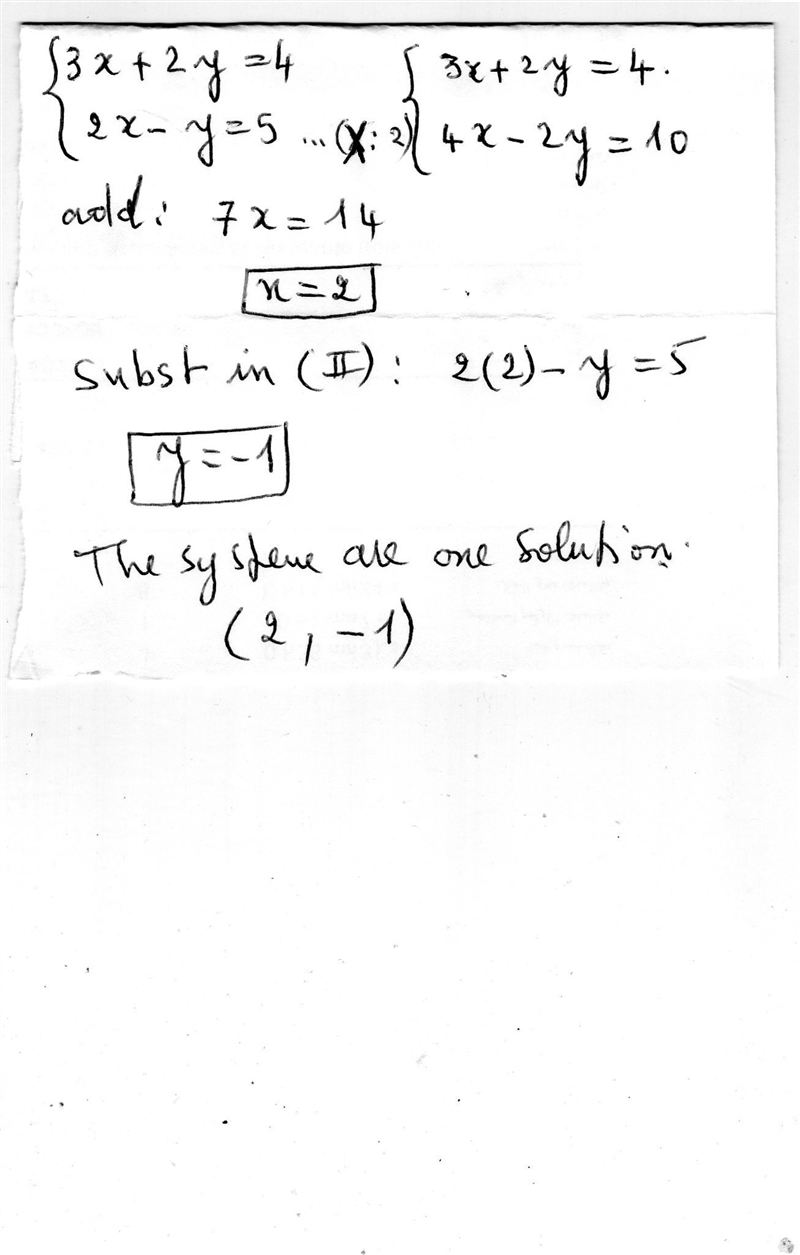 3x + 2y = 4 3x + 2y = 4.
2x - y = 5 ... (X: 2) 4x - 2y = 10
add: 7x = 14
x = 2
Subst in (II): 2(2) - y = 5
y = -1
The system are one solution.
(2, -1)